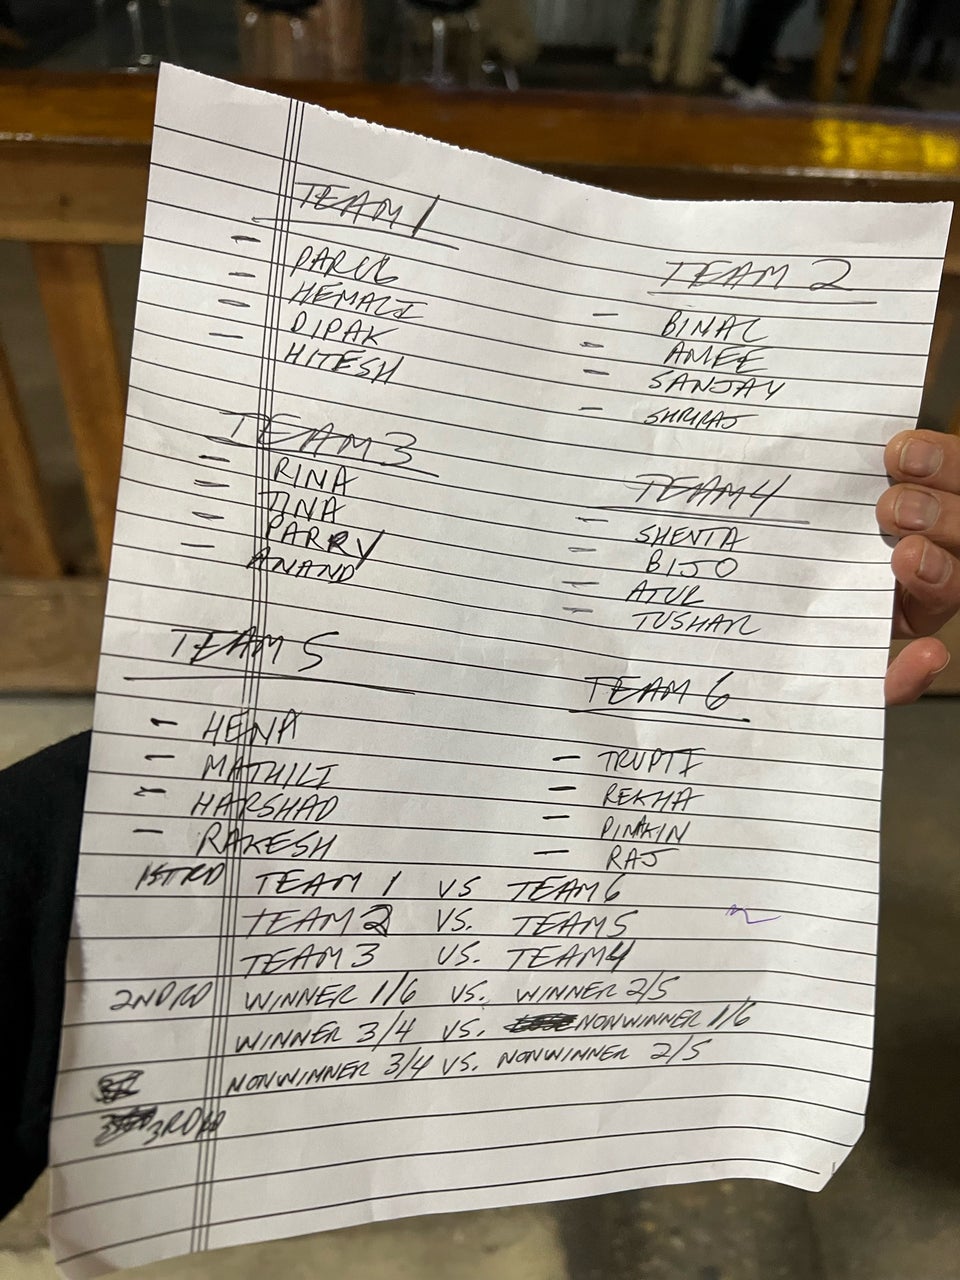 TEAM 1
- PARUL
- HEMALI
- DIPAK
- HITESH
TEAM 2
- BINAL
- AMEE
- SANJAY
- SHRIRAJ
TEAM 3
- RINA
- TINA
- PARRY
- ANAND
TEAM 4
- SHENTA
- BIJO
- ATUL
- TUSHAR
TEAM 5
- HENA
- MATHILI
- HARSHAD
- RAKESH
TEAM 6
- TRUPTI
- REKHA
- PINAKIN
- RAJ
1STRD TEAM 1 VS TEAM 6
TEAM 2 VS. TEAM 5
TEAM 3 VS. TEAM 4
2NDRD WINNER 1/6 VS. WINNER 2/5
WINNER 3/4 VS. NONWINNER 1/6
NONWINNER 3/4 VS. NONWINNER 2/5
3RDRD